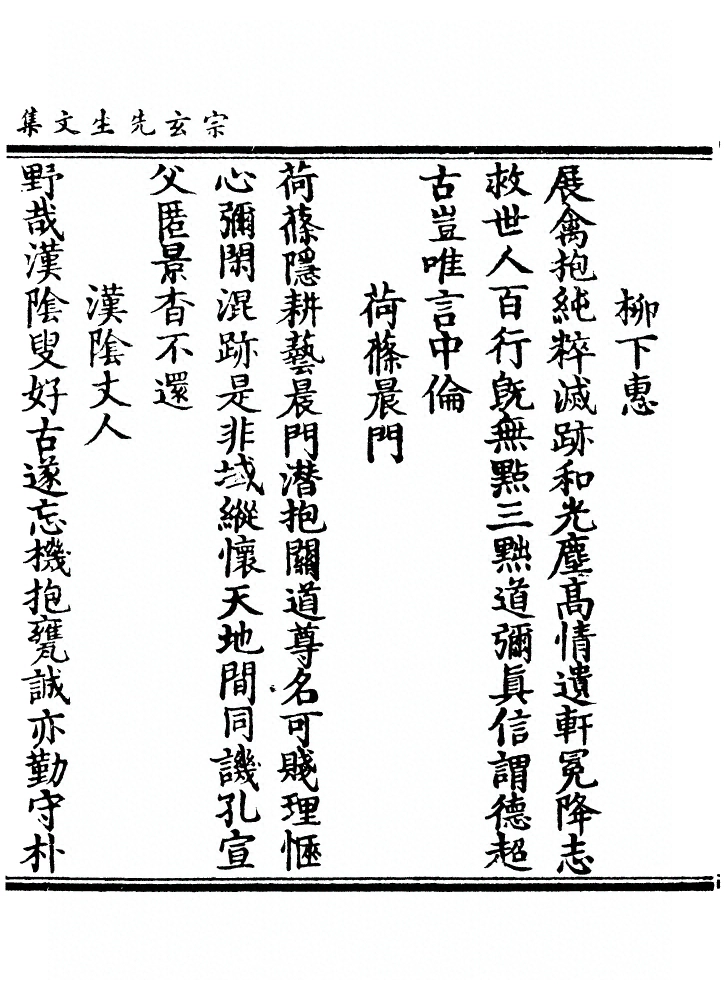 宗玄先生文集
柳下惠
展禽抱純粹滅跡和光塵高情遺軒冕降志
救世人百行旣無點三黜道彌眞信謂德超
古豈唯言中倫
荷蓧晨門
荷蓧隱耕藝晨門潛抱關道尊名可賤理愜
心彌閑混跡是非域縱懷天地間同譏孔宣
父匿景杳不還
漢陰丈人
野哉漢陰叟好古遂忘機抱甕誠亦勤守朴